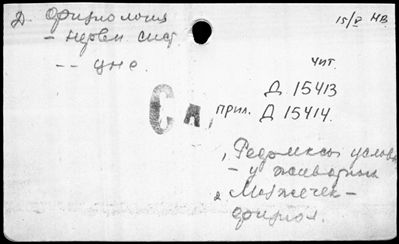 Д. Физиология 15/X НВ.
- нервн сист
-- цнс.
чит.
Д 15413
Са прил. Д 15414.
1, Рефлексы условн
- у животных
2 Мозжечек -
физиол.